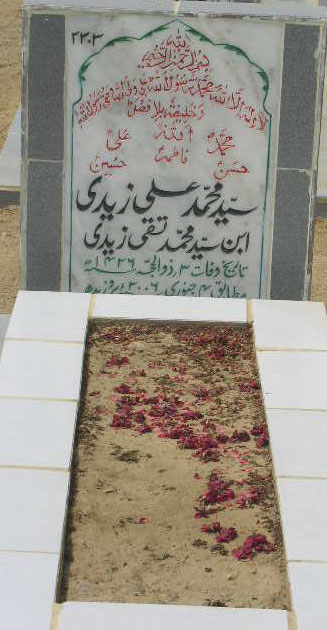 ۲۲۰۳
بسم اللہ الرحمن الرحیم
لا الہ الا اللہ محمد رسول اللہ علی ولی اللہ وصی رسول اللہ
وخلیفتہ بلا فصل
اللہ
محمدؐ علیؑ
فاطمہؑ
حسنؑ حسینؑ
سید محمد علی زیدی
ابن سید محمد تقی زیدی
تاریخ وفات ۳ ذوالحجہ ۱۴۲۶ھ
مطابق ۴ جنوری ۲۰۰۶ بروز بدھ